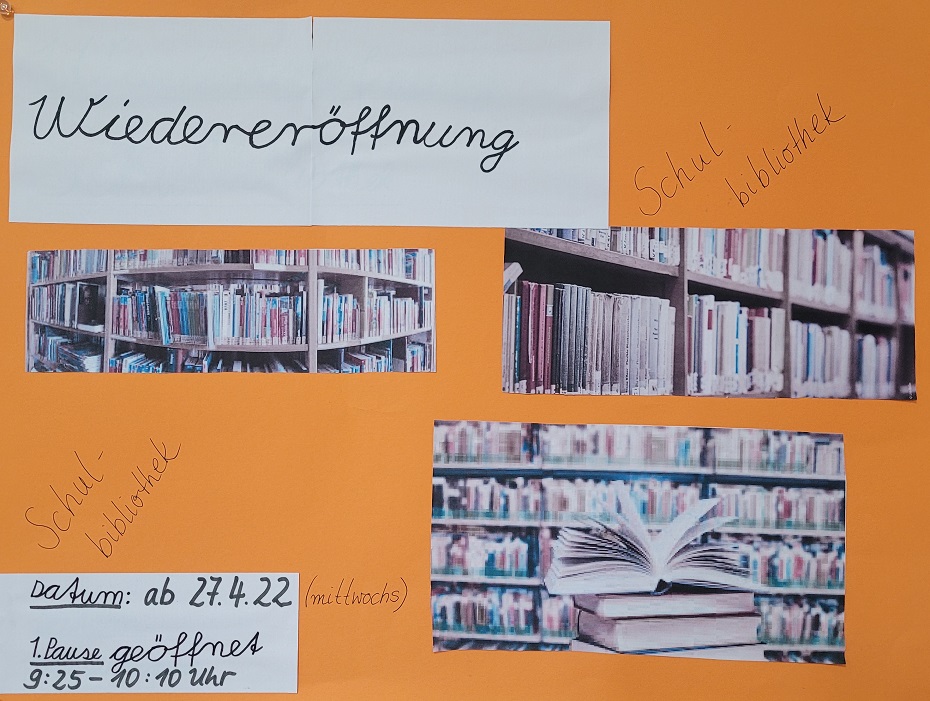 Wiedereröffnung
Schul-
bibliothek
Schul-
bibliothek
Datum: ab 27.4.22 (mittwochs)
1. Pause geöffnet
9:25 – 10:10 Uhr